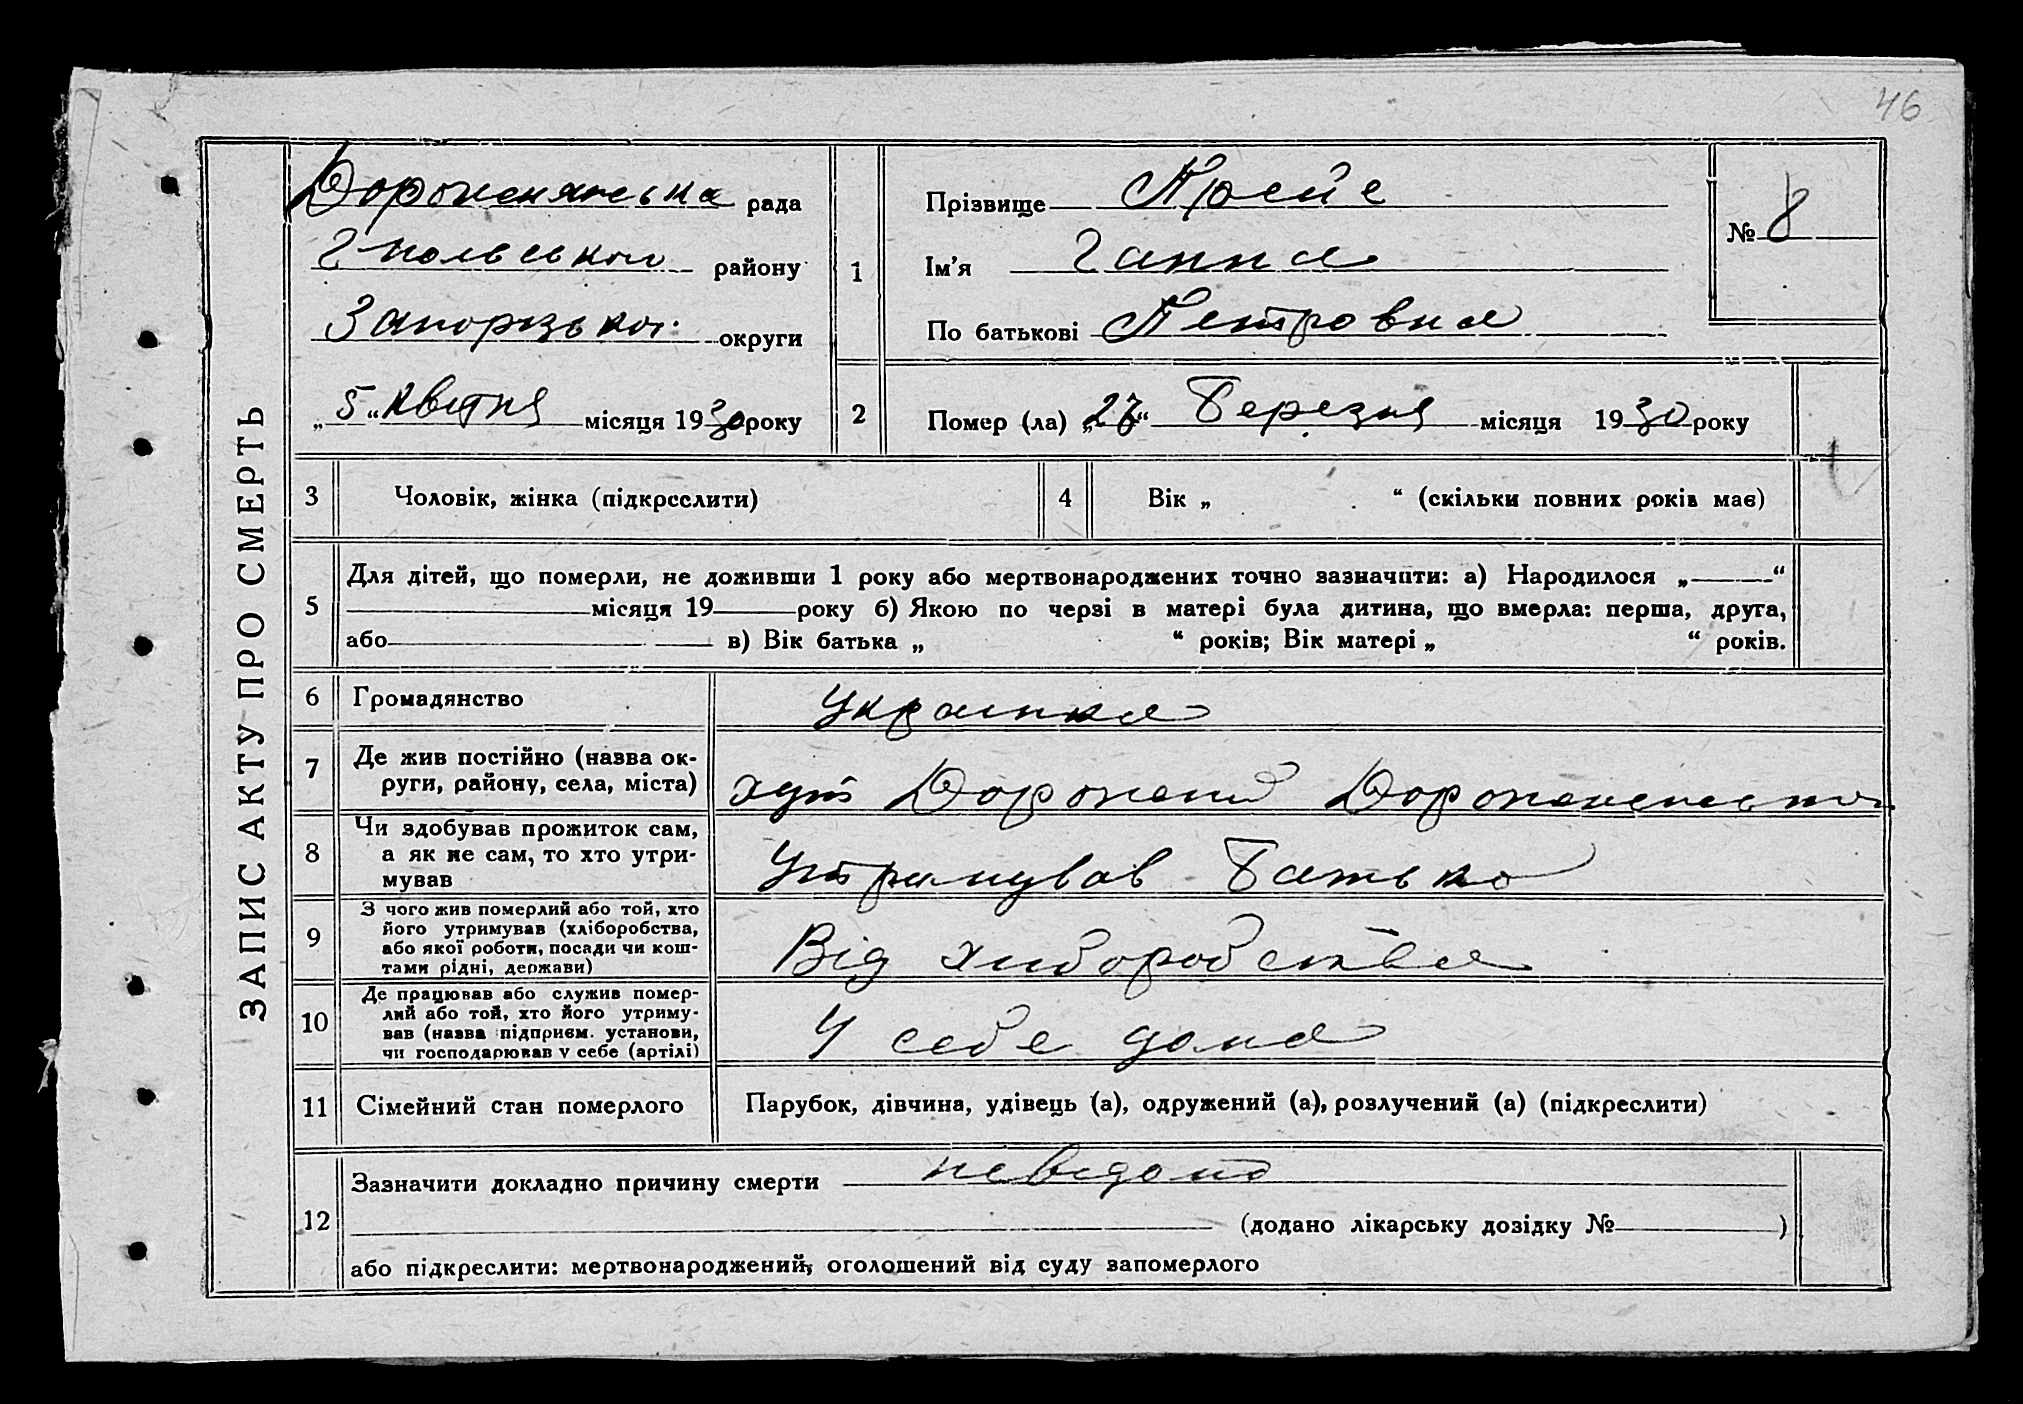 46
ЗАПИС АКТУ ПРО СМЕРТЬ
рада
району
Запорізької округи
„5“ квітня місяця 1930 року
1
Прізвище
Ім’я Ганна
По батькові Петровна
№ 8
2
Помер (ла) „27“ Березня місяця 1930 року
3
Чоловік, жінка (підкреслити)
4
Вік „ “ (скільки повних років має)
5
Для дітей, що померли, не доживши 1 року або мертвонароджених точно зазначити: а) Народилося „ “
місяця 19 року б) Якою по черзі в матері була дитина, що вмерла: перша, друга,
або в) Вік батька „ “ років; Вік матері „ “ років.
6
Громадянство
Українка
7
Де жив постійно (назва ок-
руги, району, села, міста)
хут
8
Чи здобував прожиток сам,
а як не сам, то хто утри-
мував
Утримував Батько
9
З чого жив померлий або той, хто
його утримував (хліборобства,
або якої роботи, посади чи кош-
тами рідні, держави)
Від хліборобства
10
Де працював або служив помер-
лий або той, хто його утриму-
вав (назва підприєм. установи,
чи господарював у себе (артілі)
У себе дома
11
Сімейний стан померлого
Парубок, дівчина, удівець (а), одружений (а), розлучений (а) (підкреслити)
12
Зазначити докладно причину смерти невідомо
(додано лікарську дозідку № )
або підкреслити: мертвонароджений, оголошений від суду запомерлого